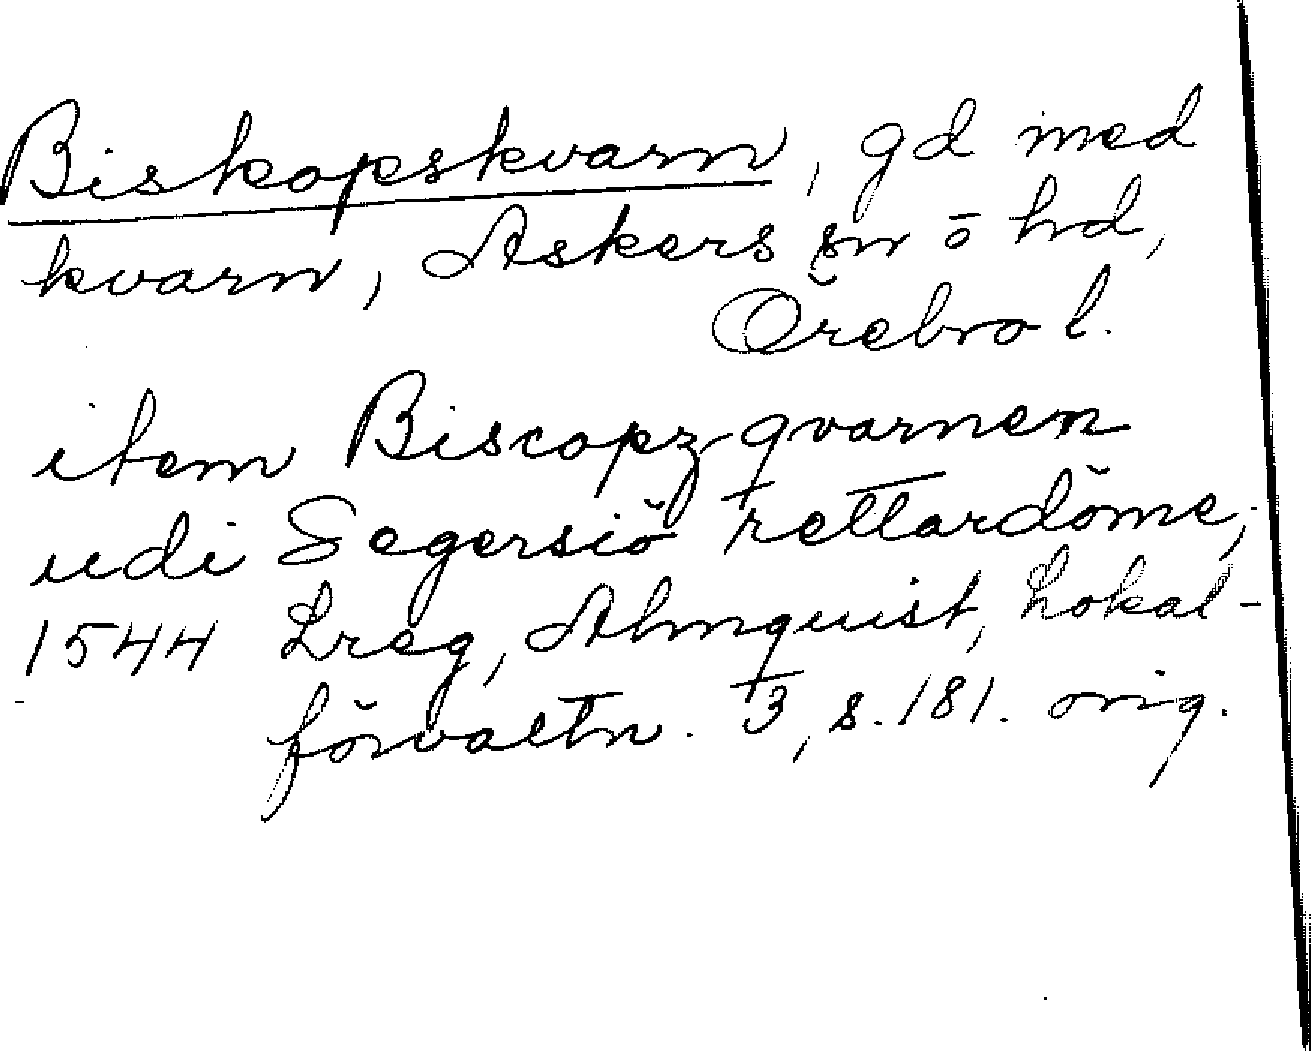 Biskopskvarn, gd med
kvarn, Askers sn o hd,
Örebro l.
item Biscopz qvarnen
udi Segersiö rettardöme,
1544 Lreg, Almquist, Lokal-
förvaltn. 3, s. 181. orig.